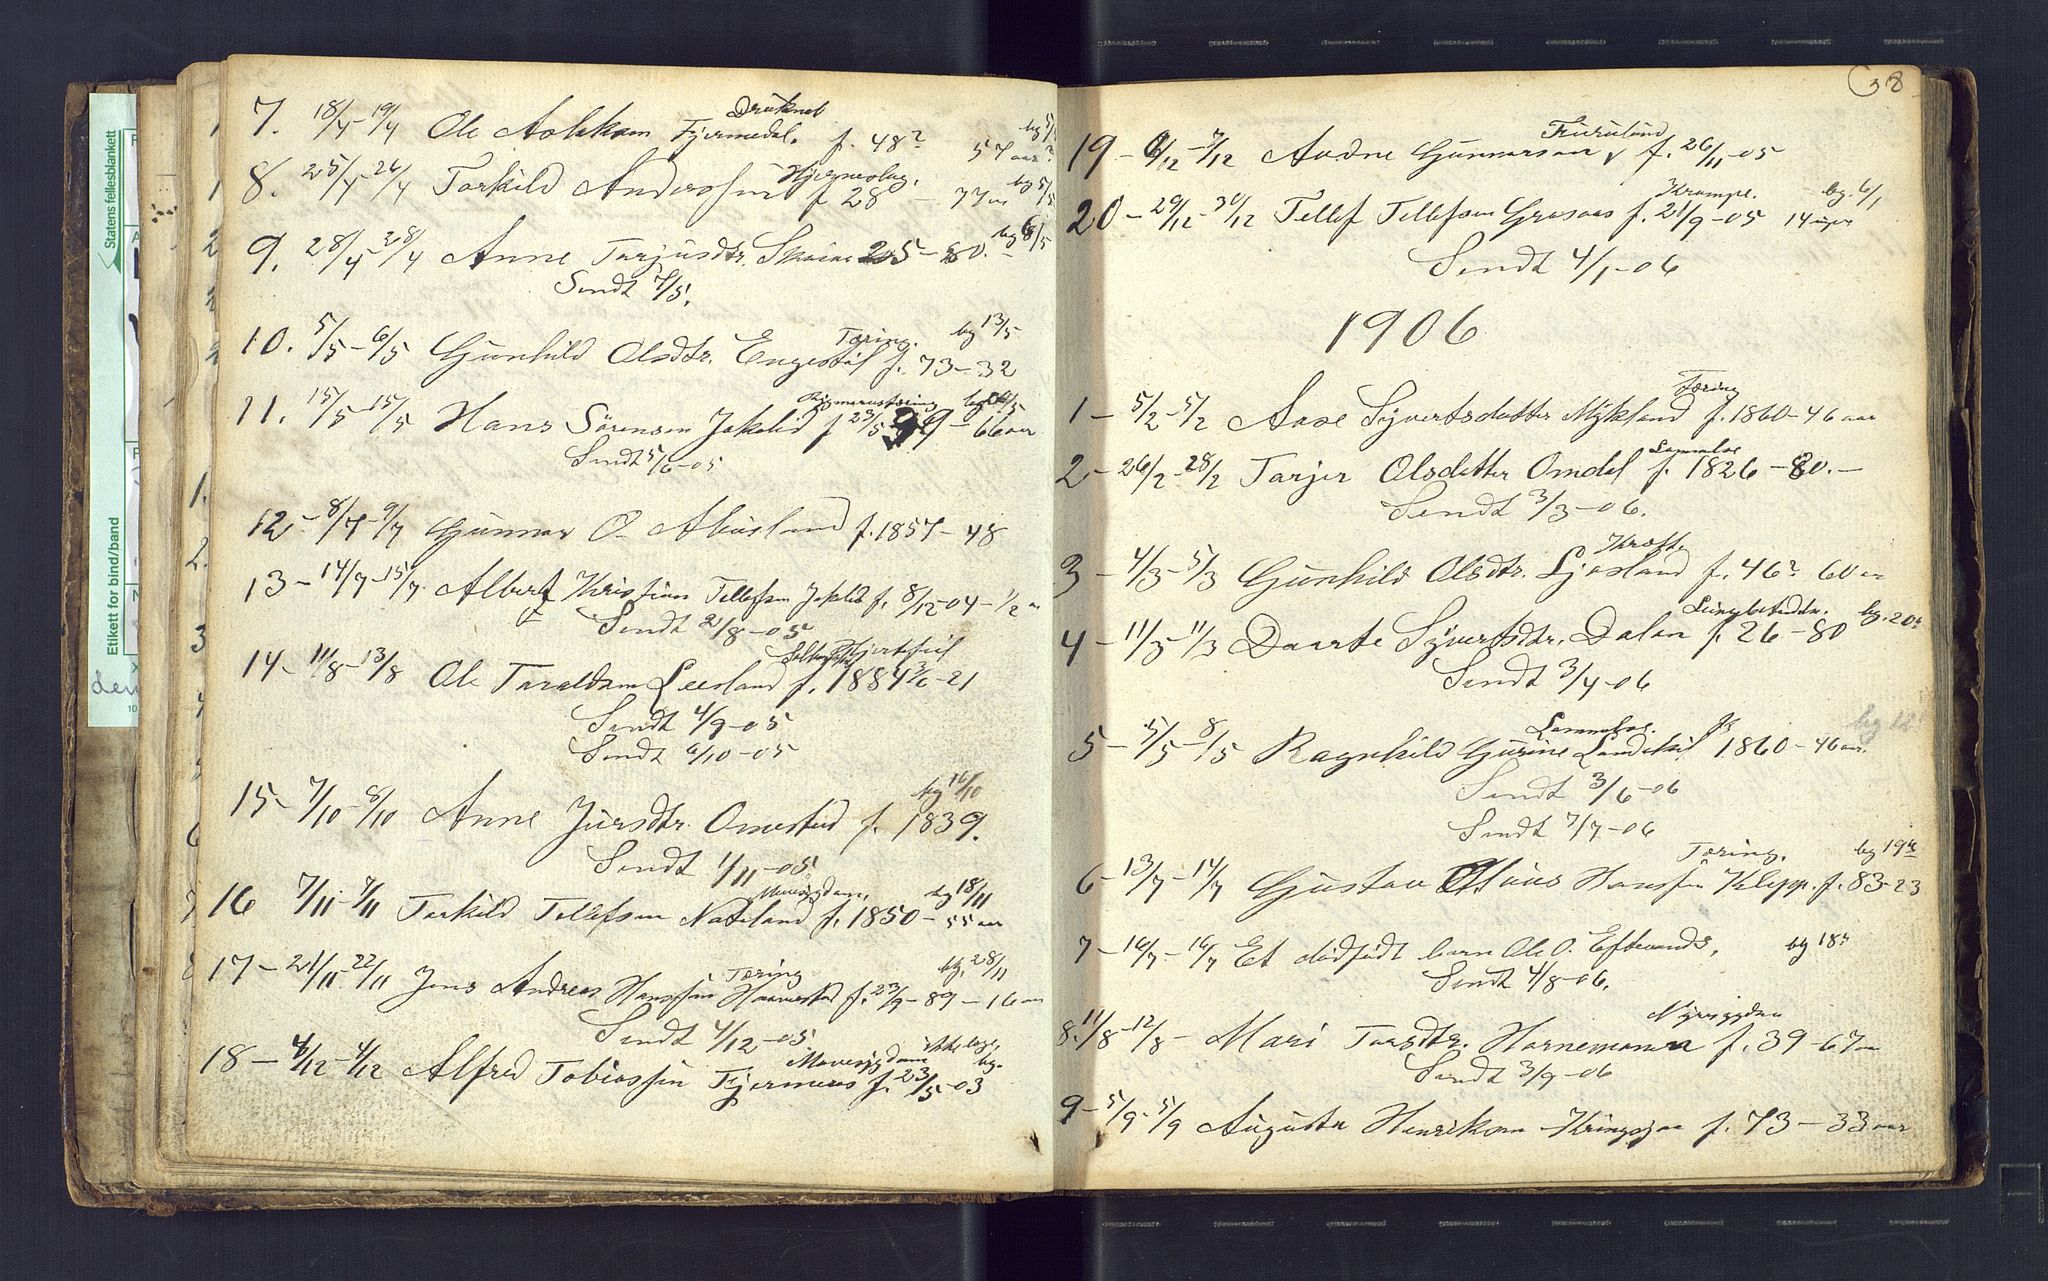 Druknet
7. 18/4-19/4 Ole Fjermedal. f. 48? 57 aar?
Hjerneslag.
8. 25/4-26/4 Torkild Anderssen f 28 - 77 bg 5/5
9. 28/4-28/4 Anne Tarjusdtr. 25-80. bg 6/5
Sendt 7/5.
Tæring. bg 13/5
10. 5/5-6/5 Gunhild Olsdtr. Engestøl f. 73-32
11. 15/5-15/5 Hans Sørensen Jokelid f 23/5 39-66 aar
Sendt 5/6-05
12-8/7-9/7 Gunnar O. Abusland f. 1857-48
13-14/7-15/7 Albert Kristian Tellefsen Jokelid f. 8/12-04-1/2 a
Sendt 2/8-05
Hjertefeil
14-11/8-13/8 Ole Taraldsen f. 1884 3/6-21
Sendt 4/9-05
Sendt 6/10-05
bg 16/10
15-7/10-8/10 Anne Jursdtr. Omestad f. 1839.
Sendt 1/11-05.
Mavesygdom. bg 18/11
16 7/11-7/11 Torkild Tellefsen Nateland f. 1850-55 aar
Tæring bg. 28/11
17-21/11-22/11 Jens Andreas Hanssen f. 23/9-89-16 aar
Sendt 4/12-05.
Mavesygdom bg.
18-4/12-4/12 Alfred Tobiassen Fjermeros f. 23/5-03
38
Furulund
19-6/12-7/12 Aadne Gunnarsen f. 26/11-05
Krampe. bg. 6/1
20-29/12-30/12 Tellef Tellefsen Grosaas f. 21/9-05 14 uger
Sendt 4/1-06
1906
Tæring
1-5/2-5/2 Aase Syvertsdatter Mykland f. 1860-46 aar
Lammelse
2-26/2-28/2 Tarjer Olsdatter Omdal f. 1826-80.-
Sendt 3/3-06.
Kræft.
3-4/3-5/3 Gunhild Olsdtr. Ljosland f. 46? 60 aar
Lungebetændelse. bg. 20
4-11/3-11/3 Daarte Syvertsdtr. Dalen f. 26-80
Sendt 3/4-06
Lammelse. f. bg 12
5-5/5-8/5 Ragnhild Gurine Landskil 1860-46 aar.
Sendt 3/6-06
Sendt 7/7-06
Tæring. bg 19
6-13/7-14/7 Gustav Hanssen Klepp. f. 83-23
7-16/7-16/7 Et dødfødt barn Ole O. Eftevands. bg 18
Sendt 4/8-06.
Nyresygdom
8. 11/8-12/8- Mari Tarsdtr. Hornemann f. 39-67
Sendt 3/9-06
9-5/9-5/9 Augusta Henriksen Kringsjaa f. 73-33 aar
Statens fellesblankett
Etikett for bind/band